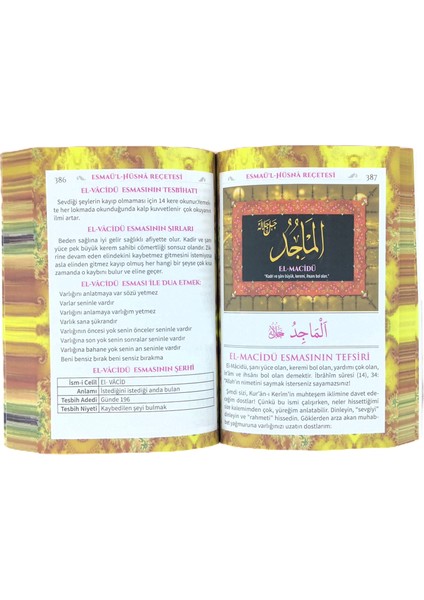 386
ESMAÜ'L-HÜSNÂ REÇETESİ
EL-VÂCİDÜ ESMASININ TESBİHATI
Sevdiği şeylerin kayıp olmaması için 14 kere okunur.
te her lokmada okunduğunda kalp kuvvetlenir çok okuyanın
ilmi artar.
EL-VÂCİDÜ ESMASININ SIRLARI
Beden sağlığına iyi gelir sağlıklı afiyette olur. Kadir ve şanı
yüce pek büyük kerem sahibi cömertliği sonsuz olandır. Zik
rine devam eden elindekini kaybetmez gitmesini istemişse
asla elinden gitmez kayıp olmuş her hangi bir şeyse çok kısa
zamanda o kaybını bulur ve eline geçer.
EL-VÂCİDÜ ESMASI İLE DUA ETMEK:
Varlığını anlatmaya var sözü yetmez
Varlar seninle vardır
Varlığını anlatmaya varlığım yetmez
Varlık sana şükrandır
Varlığının öncesi yok senin önceler seninle vardır
Varlığına son yok senin sonralar seninle vardır
Varlığına bahane yok senin an seninle vardır
Beni bensiz bırak beni sensiz bırakma
EL-VÂCİDÜ ESMASININ ŞERHİ
İsm-i Celil El- VÂCİD
Anlamı İstediğini istediği anda bulan
Tesbih Adedi Günde 196
Tesbih Niyeti Kaybedilen şeyi bulmak
ESMAÜ'L-HÜSNÂ REÇETESİ
387
الماجد
جل جلاله
EL-MACİDÜ
"Kadir ve şânı büyük, keremi, ihsanı bol olan."
اَلْمَاجِدُ
EL-MACİDÜ ESMASININ TEFSİRİ
El-Mâcidü, şanı yüce olan, keremi bol olan, yardımı çok olan,
ve ihsanı bol olan demektir. İbrâhîm sûresi (14), 34:
"Allah'ın nimetini saymak isterseniz sayamazsınız!
Şimdi sizi, Kur'ân-ı Kerîm'in muhteşem iklimine davet ede-
ceğim dostlar! Çünkü bu ismi çalışırken, neler hissettiğimi
size kalemimden çok, yüreğim anlatabilir. Dinleyin, "sevgiyi"
dinleyin ve "rahmeti" hissedin. Göklerden arza akan muhab-
bet yağmuruna varlığınızı uzatın dostlarım: